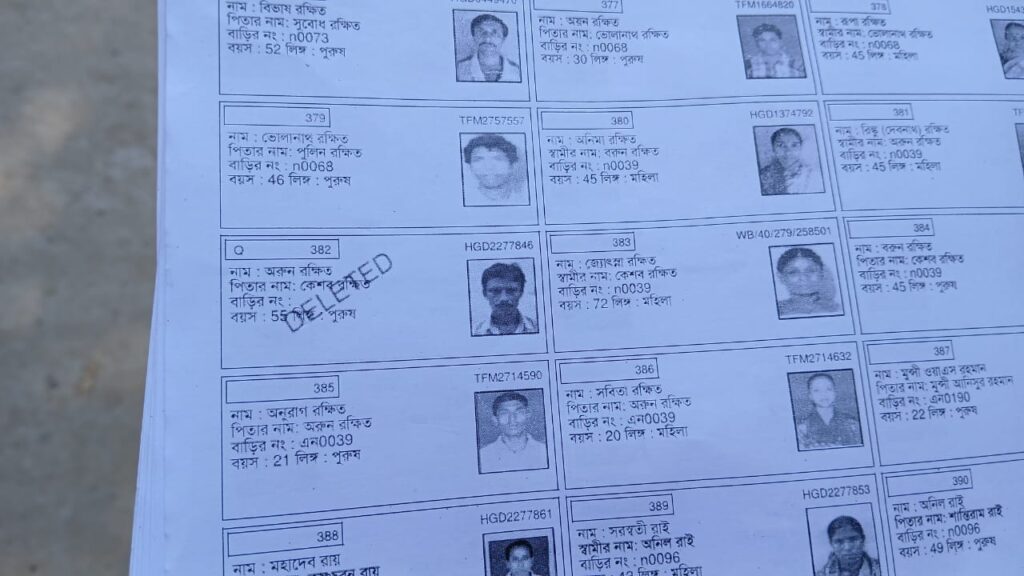 নাম : বিভাষ রক্ষিত
পিতার নাম: সুবোধ রক্ষিত
বাড়ির নং : n0073
বয়স : 52 লিঙ্গ : পুরুষ
377
TFM1664820
নাম : অয়ন রক্ষিত
পিতার নাম: ভোলানাথ রক্ষিত
বাড়ির নং : n0068
বয়স : 30 লিঙ্গ : পুরুষ
378
নাম : রূপা রক্ষিত
স্বামীর নাম: ভোলানাথ রক্ষিত
বাড়ির নং : n0068
বয়স : 45 লিঙ্গ : মহিলা
379
TFM2757557
নাম : ভোলানাথ রক্ষিত
পিতার নাম: পুলিন রক্ষিত
বাড়ির নং : n0068
বয়স : 46 লিঙ্গ : পুরুষ
380
HGD1374792
নাম : অনিমা রক্ষিত
স্বামীর নাম: বরুন রক্ষিত
বাড়ির নং : n0039
বয়স : 45 লিঙ্গ : মহিলা
381
নাম : রিঙ্কু (দেবনাথ) রক্ষিত
স্বামীর নাম: অরুন রক্ষিত
বাড়ির নং : n0039
বয়স : 45 লিঙ্গ : মহিলা
Q 382
HGD2277846
নাম : অরুন রক্ষিত
পিতার নাম: কেশব রক্ষিত
বাড়ির নং :
বয়স : 55 লিঙ্গ : পুরুষ
DELETED
383
WB/40/279/258501
নাম : জ্যোৎস্না রক্ষিত
স্বামীর নাম: কেশব রক্ষিত
বাড়ির নং : n0039
বয়স : 72 লিঙ্গ : মহিলা
384
নাম : বরুন রক্ষিত
পিতার নাম: কেশব রক্ষিত
বাড়ির নং : n0039
বয়স : 45 লিঙ্গ : পুরুষ
385
TFM2714590
নাম : অনুরাগ রক্ষিত
পিতার নাম: অরুন রক্ষিত
বাড়ির নং : এন0039
বয়স : 21 লিঙ্গ : পুরুষ
386
TFM2714632
নাম : সবিতা রক্ষিত
পিতার নাম: অরুন রক্ষিত
বাড়ির নং : এন0039
বয়স : 20 লিঙ্গ : মহিলা
387
নাম : মুন্সী ওয়াএস রহমান
পিতার নাম: মুন্সী আনিসুর রহমান
বাড়ির নং : এন0190
বয়স : 22 লিঙ্গ : পুরুষ
388
HGD2277861
নাম : মহাদেব রায়
389
HGD2277853
নাম : সরস্বতী রাই
স্বামীর নাম: অনিল রাই
বাড়ির নং : n0096
লিঙ্গ : মহিলা
390
নাম : অনিল রাই
পিতার নাম: শান্তিরাম রাই
বাড়ির নং : n0096
বয়স : 49 লিঙ্গ : পুরুষ